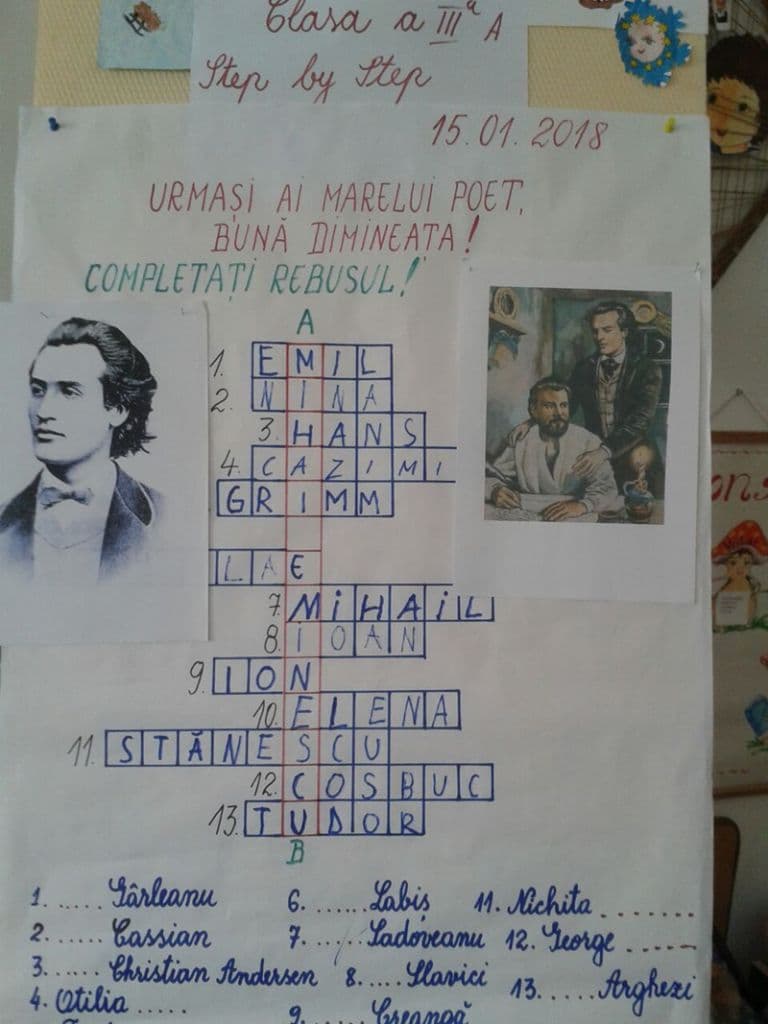 Clasa a IIIa A
Step by Step
15.01.2018
URMAȘI AI MARELUI POET,
BUNĂ DIMINEATA!
COMPLETAȚI REBUSUL!
A
1. EMIL
2. NINA
3. HANS
4. CAZIMI
GRIMM
LAE
7. MIHAIL
8. IOAN
9. ION
10. ELENA
11. STĂNESCU
12. COSBUC
13. TUDOR
B
1. ...... Gârleanu 6. ...... Labiș 11. Nichita .......
2. ...... Cassian 7. ...... Sadoveanu 12. George .....
3. ...... Christian Andersen 8. .... Slavici 13. ..... Arghezi
4. Otilia ..... 9. Creangă